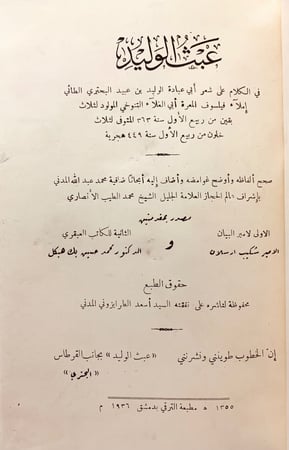 عبث الوليد
في الكلام على شعر أبي عبادة الوليد بن عبيد البحتري الطائي
إملاء فيلسوف المعرة أبي العلاء التنوخي المولود لثلاث
بقين من ربيع الأول سنة ٣٦٣ المتوفى لثلاث
خلون من ربيع الأول سنة ٤٤٩ هجرية
صحح ألفاظه وأوضح غوامضه وأضاف إليه أبحاثا ضافية محمد عبد الله المدني
بإشراف عالم الحجاز العلامة الجليل الشيخ محمد الطيب الأنصاري
مصدر بمقدمتين
الأولى لأمير البيان
الثانية للكاتب العبقري
الأمير شكيب ارسلان
و
الدكتور محمد حسين بك هيكل
حقوق الطبع
محفوظة لناشره على نفقته السيد أسعد الطرابزوني المدني
إن الخطوب طوينني ونشرنني
«عبث الوليد» بجانب القرطاس
«البحتري»
١٣٥٥ هـ مطبعة الترقي بدمشق ١٩٣٦ م